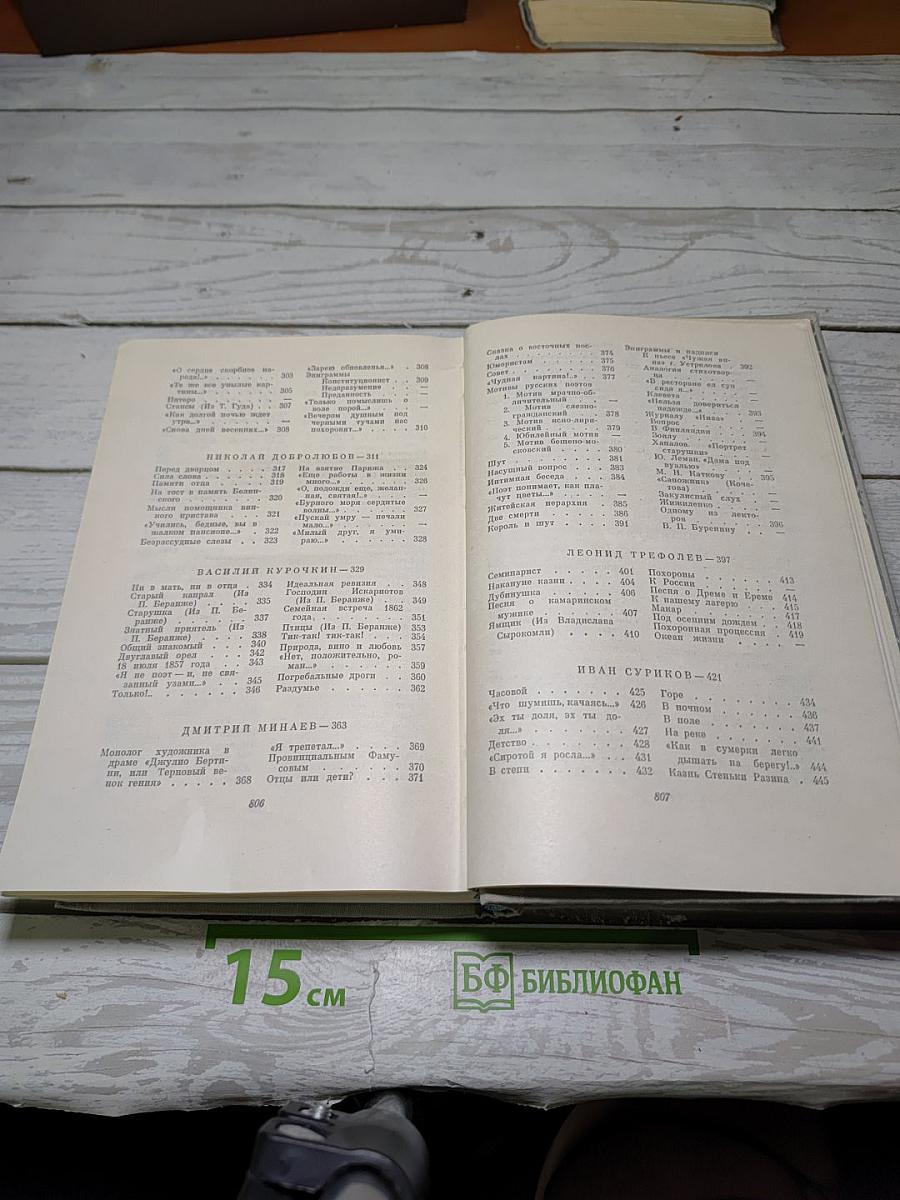 «О сердце скорбное на-
рода!..» . . . . . . 303
«Те же все унылые кар-
тины...» . . . . . 305
Питеро . . . . . . —
Стансы (Из Т. Гуда) . 307
«Как долгой ночью ждет
утра...» . . . . . —
«Снова дней весенних...» 308
«Зарею обновленья..» . 308
Эпиграммы
Конституционист . . 309
Недоразумение . . —
Преданность . . . —
«Только помыслишь о
воле порой...» . . —
«Вечером душным под
черными тучами нас
похоронят...» . . . 310
НИКОЛАЙ ДОБРОЛЮБОВ — 311
Перед дворцом . . . . 317
Сила слова . . . . . 318
Памяти отца . . . . . 319
На тост в память Белин-
ского . . . . . . 320
Мысли помощника вин-
ного пристава . . . 321
«Учились, бедные, вы в
жалком пансионе...» . 322
Безрассудные слезы . . 323
На взятие Парижа . . 324
«Еще работы в жизни
много...» . . . . . 326
«О, подожди еще, желан-
ная, святая!..» . . —
«Бурного моря сердитые
волны...» . . . . . 327
«Пускай умру — печали
мало...» . . . . . —
«Милый друг, я уми-
раю...» . . . . . 328
ВАСИЛИЙ КУРОЧКИН — 329
Ни в мать, ни в отца . 334
Старый капрал (Из
П. Беранже) . . . . 335
Старушка (Из П. Бе-
ранже) . . . . . 337
Знатный приятель (Из
П. Беранже) . . . . 338
Общий знакомый . . . 340
Двуглавый орел . . . 342
18 июля 1857 года . . . 343
«Я не поэт — и, не свя-
занный узами...» . . 345
Только!.. . . . . . . 346
Идеальная ревизия . . 348
Господин Искариотов
(Из П. Беранже) . . 349
Семейная встреча 1862
года . . . . . . . 351
Птицы (Из П. Беранже) 353
Тик-так! тик-так! . . . 354
Природа, вино и любовь 357
«Нет, положительно, ро-
ман...» . . . . . . 359
Погребальные дроги . . 360
Раздумье . . . . . . 362
ДМИТРИЙ МИНАЕВ — 363
Монолог художника в
драме «Джулио Берти-
ни, или Терновый ве-
нок гения» . . . . . 368
«Я трепетал...» . . . . 369
Провинциальным Фаму-
совым . . . . . . 370
Отцы или дети? . . . . 371
806
Сказка о восточных пос-
лах . . . . . . . 374
Юмористам . . . . . 375
Совет . . . . . . . 376
«Чудная картина!..» . . 377
Мотивы русских поэтов
1. Мотив мрачно-об-
личительный . . . —
2. Мотив слезно-
гражданский . . . 378
3. Мотив ясно-лири-
ческий . . . . . 379
4. Юбилейный мотив —
5. Мотив бешено-мо-
сковский . . . . 380
Шут . . . . . . . . 381
Насущный вопрос . . . 383
Интимная беседа . . . 384
«Поэт понимает, как пла-
чут цветы...» . . . —
Житейская иерархия . . 385
Две смерти . . . . . 386
Король и шут . . . . 391
Эпиграммы и надписи
К пьесе «Чужая ви-
на» г. Устрялова . 392
Аналогия стихотвор-
ца . . . . . . . —
«В ресторане ел суп
сидя я..» . . . . —
Клевета . . . . . —
«Нельзя довериться
надежде...» . . . 393
Журналу «Нива» . . —
Вопрос . . . . . . —
В Финляндии . . . 394
Зоилу . . . . . . —
Хапалов. «Портрет
старушки» . . . —
Ю. Леман. «Дама под
вуалью» . . . . —
М. Н. Каткову . . 395
«Савожник» (Коче-
това) . . . . . —
Закулисный слух . —
Жижиленко . . . . —
Одному из лекто-
ров . . . . . . 396
В. П. Буренину . . —
ЛЕОНИД ТРЕФОЛЕВ — 397
Семинарист . . . . . 401
Накануне казни . . . . 404
Дубинушка . . . . . 406
Песня о камаринском
мужике . . . . . 407
Ямщик (Из Владислава
Сырокомли) . . . . 410
Похороны . . . . . . 413
К России . . . . . . —
Песня о Дреме и Ереме 414
К нашему лагерю . . . 415
Макар . . . . . . . 417
Под осенним дождем . . 418
Похоронная процессия . 419
Океан жизни . . . . . —
ИВАН СУРИКОВ — 421
Часовой . . . . . . . 425
«Что шумишь, качаясь...» 426
«Эх ты доля, эх ты до-
ля...» . . . . . . 427
Детство . . . . . . . 428
«Сиротой я росла...» . . 431
В степи . . . . . . . 432
Горе . . . . . . . . 434
В ночном . . . . . . 436
В поле . . . . . . . 437
На реке . . . . . . . 441
«Как в сумерки легко
дышать на берегу!..» 444
Казнь Стеньки Разина . 445
807
15 см
БФ БИБЛИОФАН